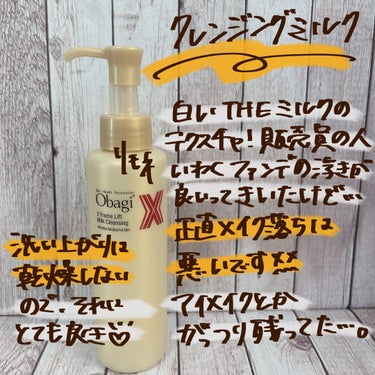 クレンジングミルク
白いTHEミルクの
テクスチャ!販売員の人
いわくファンデの浮きが
良いってきいたけど…
正直メイク落ちは
悪いです××
アイメイクとか
がっつり残ってた…。
洗い上がりは
乾燥しない
ので、それは
とても良き♡
Obagi X
X Frame Lift
Milk Cleansing